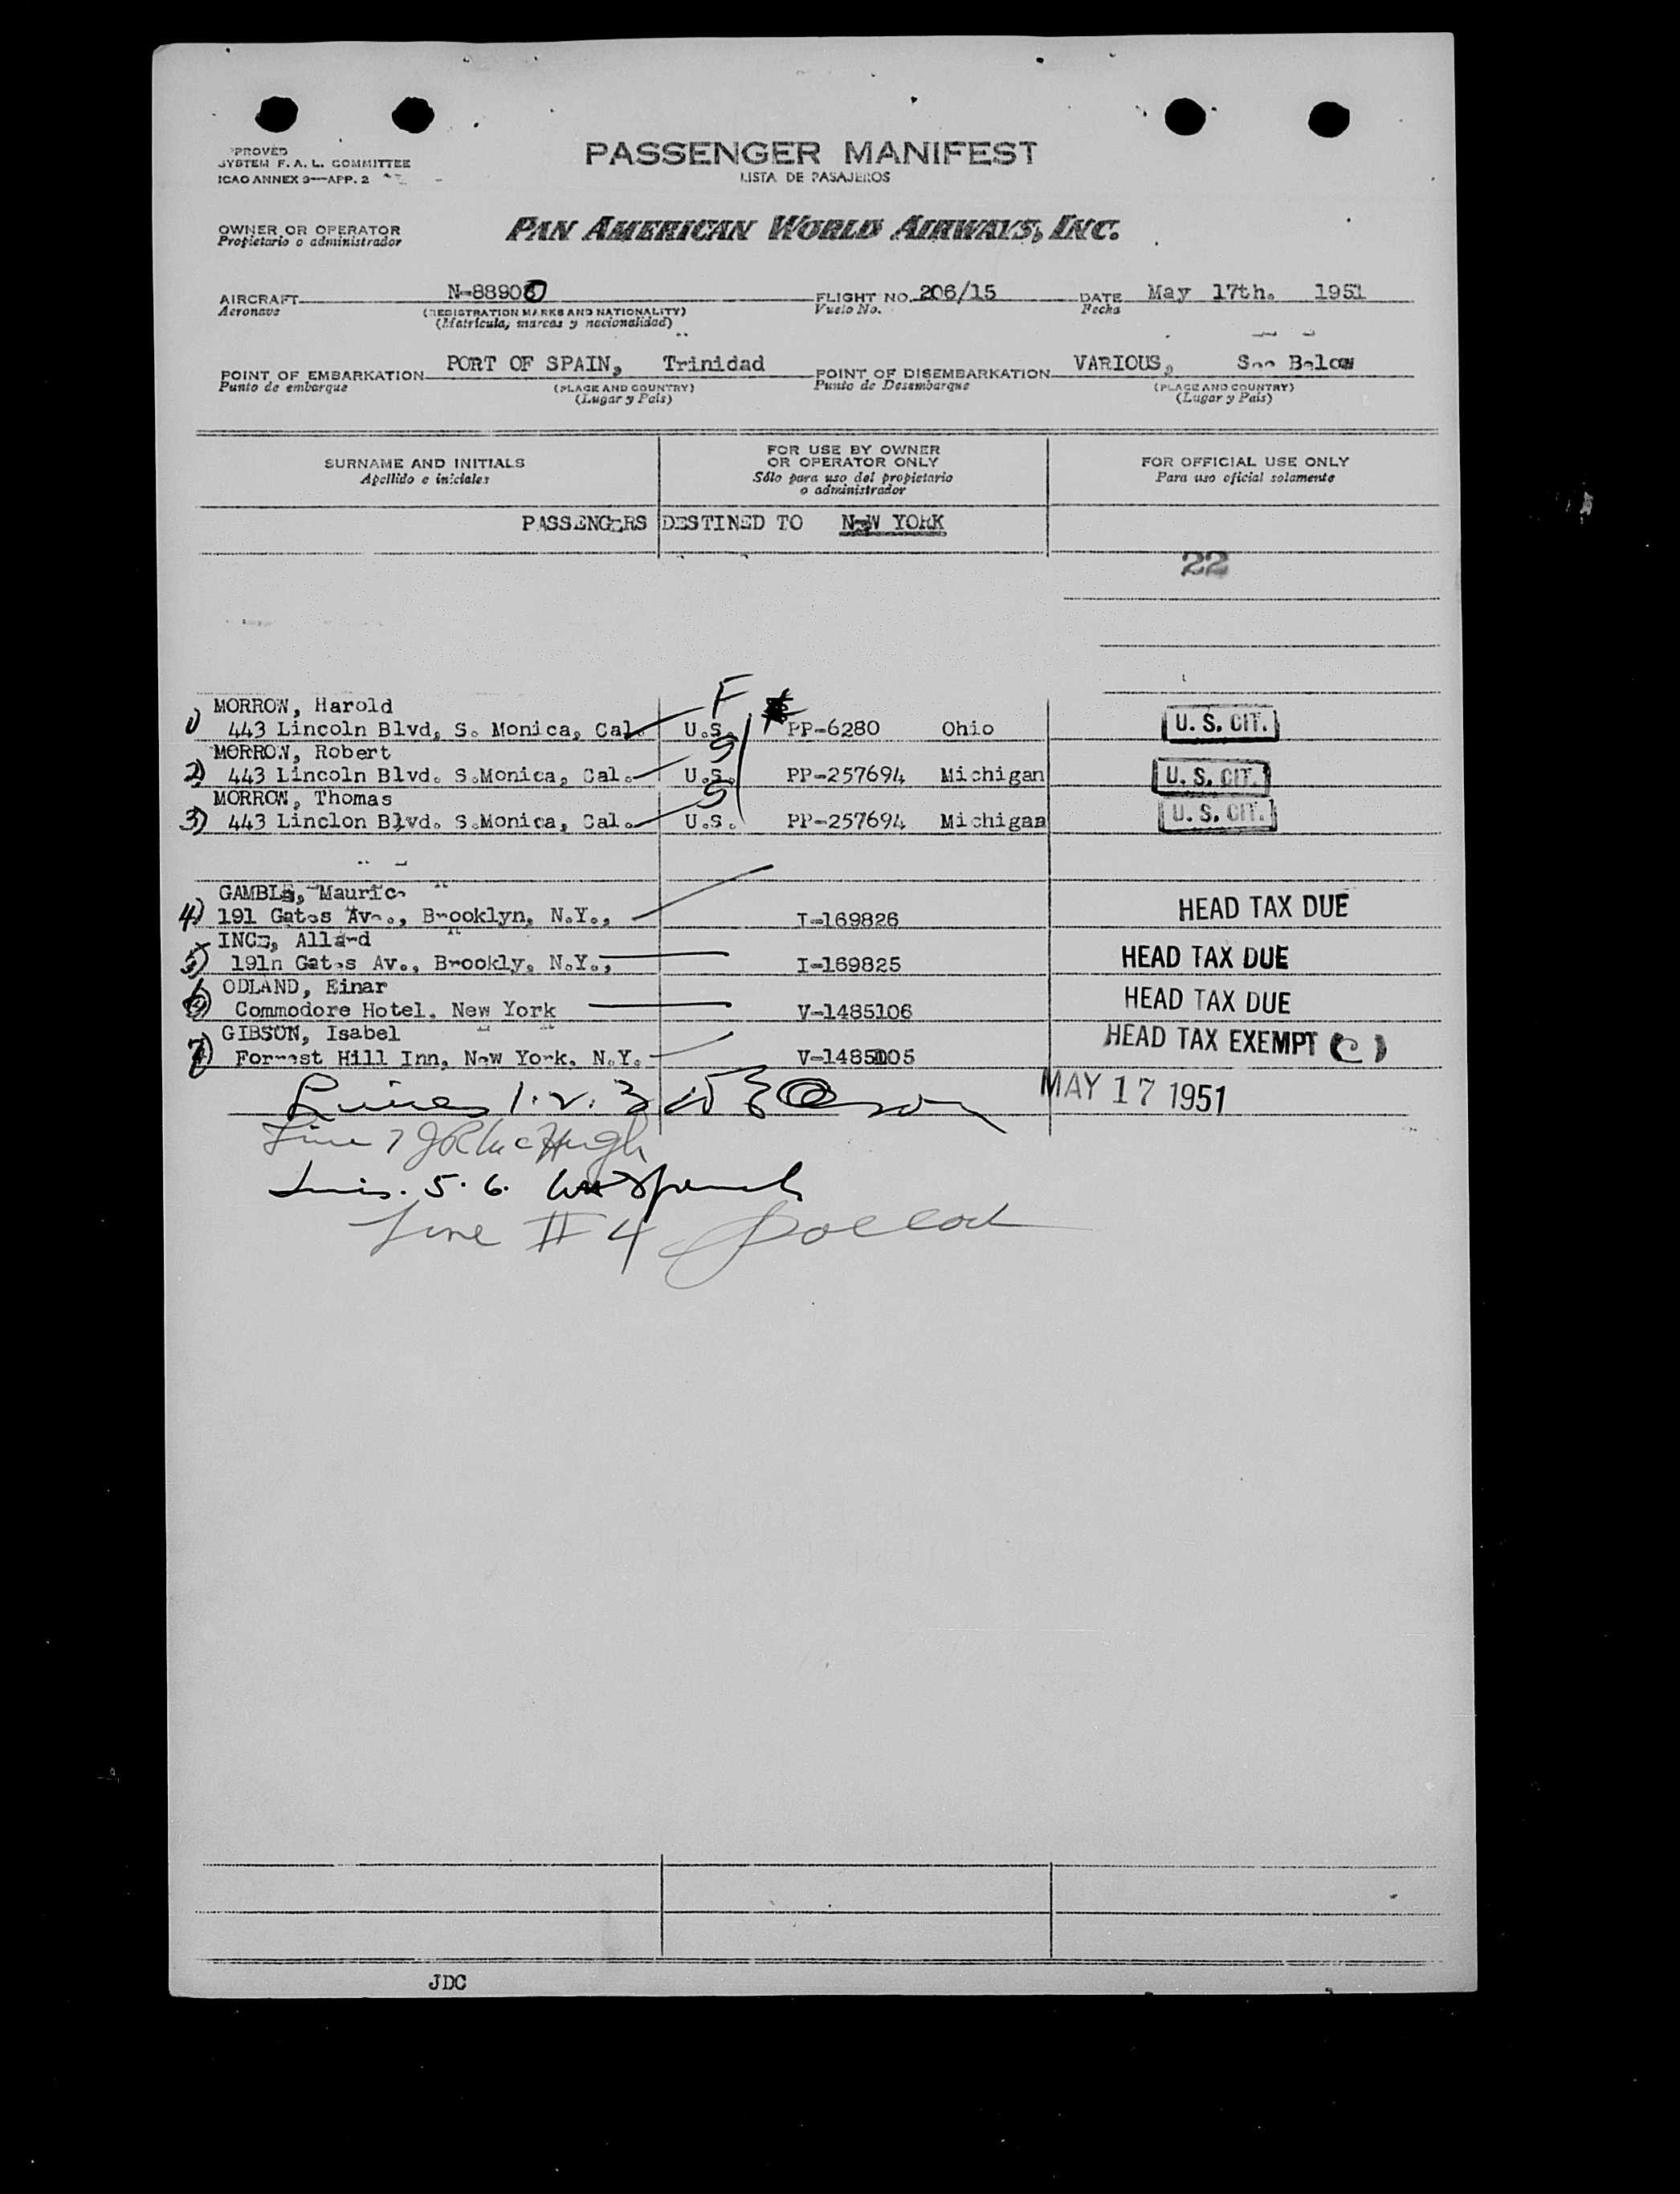 PROVED
SYSTEM F. A. L. COMMITTEE
ICAO ANNEX 9—APP. 2
PASSENGER MANIFEST
LISTA DE PASAJEROS
OWNER OR OPERATOR
Propietario o administrador
PAN AMERICAN WORLD AIRWAYS, INC.
AIRCRAFT N-88900 FLIGHT NO. 206/15 DATE May 17th. 1951
Aeronave (REGISTRATION MARKS AND NATIONALITY) Vuelo No. Fecha
(Matrícula, marcas y nacionalidad)
POINT OF EMBARKATION PORT OF SPAIN, Trinidad POINT OF DISEMBARKATION VARIOUS, See Below
Punto de embarque (PLACE AND COUNTRY) Punto de Desembarque (PLACE AND COUNTRY)
(Lugar y País) (Lugar y País)
SURNAME AND INITIALS
Apellido e iniciales
FOR USE BY OWNER
OR OPERATOR ONLY
Sólo para uso del propietario
o administrador
FOR OFFICIAL USE ONLY
Para uso oficial solamente
PASSENGERS DESTINED TO NEW YORK
22
MORROW, Harold F
1) 443 Lincoln Blvd, S. Monica, Cal. U.S. PP-6280 Ohio U. S. CIT.
MORROW, Robert S
2) 443 Lincoln Blvd. S.Monica, Cal. U.S. PP-257694 Michigan U. S. CIT.
MORROW, Thomas S
3) 443 Linclon Blvd. S.Monica, Cal. U.S. PP-257694 Michigan U. S. CIT.
GAMBLE, Maurice
4) 191 Gates Ave., Brooklyn, N.Y., I-169826 HEAD TAX DUE
INCE, Allard
5) 191n Gates Av., Brookly, N.Y., I-169825 HEAD TAX DUE
ODLAND, Einar
6) Commodore Hotel, New York V-1485106 HEAD TAX DUE
GIBSON, Isabel
7) Forrest Hill Inn, New York, N.Y. V-1485105 HEAD TAX EXEMPT (C)
Lines 1. 2. 3
MAY 17 1951
Line 7 J R McHugh
Lines. 5. 6.
Line # 4
JDC